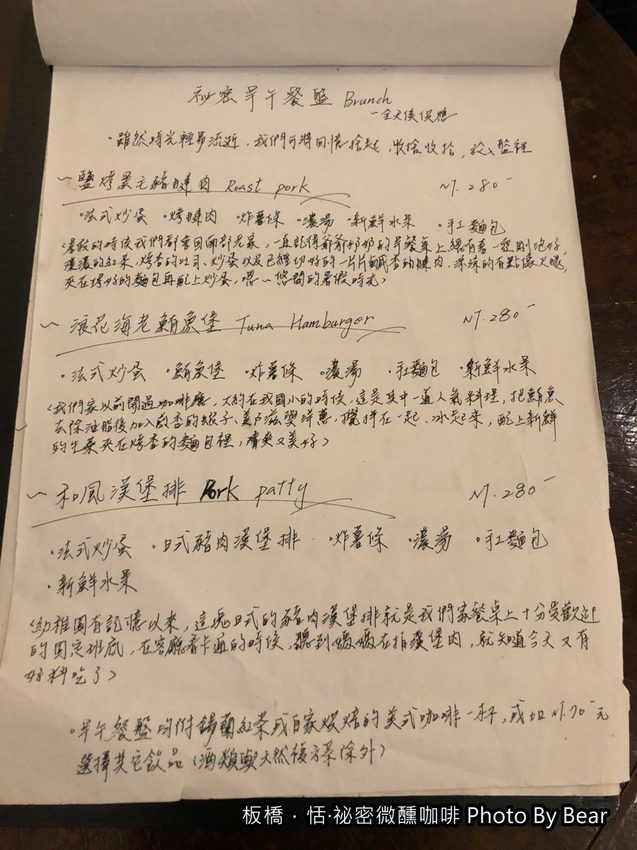 祕密早午餐盤 Brunch
~全天候供應
·雖然時光輕易流逝,我們可將回憶捨起,收捨收捨,放入盤裡
~鹽烤黑毛豬腱肉 Roast pork NT.280-
·法式炒蛋 ·烤腱肉 ·炸薯條 ·濃湯 ·新鮮水果 ·手工麵包
濃濃的紅茶,烤香的吐司、炒蛋以及已經切好的一片片鹹香的腱肉
夾在烤好的麵包再配上炒蛋,嗯~悠閒的暑假時光>
~浪花海老鮪魚堡 Tuna Hamburger NT.280-
·法式炒蛋 ·鮪魚堡 ·炸薯條 ·濃湯 ·手工麵包 ·新鮮水果
<我們家以前開過咖啡廳,大約在我國小的時候,這是其中一道人氣料理,把鮪魚
去除油脂後加入煎香的蝦子、美乃滋與洋蔥,攪拌在一起,冰起來,配上新鮮
的生菜夾在烤香的麵包裡,清爽又美好>
~和風漢堡排 Pork patty NT.280-
·法式炒蛋 ·日式豬肉漢堡排 ·炸薯條 ·濃湯 ·手工麵包
·新鮮水果
<幼稚園有記憶以來,這塊日式的豬肉漢堡排就是我們家餐桌上十分受歡迎
的固定班底,在客廳看卡通的時候,聽到媽媽在拍漢堡肉,就知道今天又有
好料吃了>
·早午餐盤均附錫蘭紅茶或自家烘焙的美式咖啡一杯,或加NT.70-元
選擇其它飲品(酒類與天然複方茶除外)
板橋・恬·祕密微醺咖啡 Photo By Bear